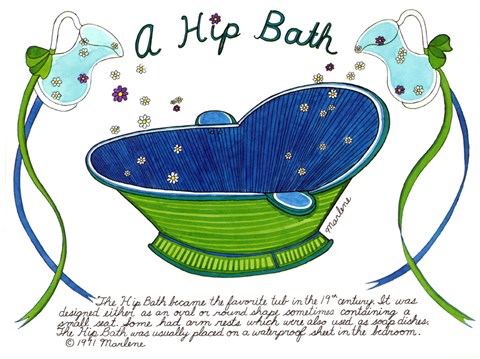 A Hip Bath
Marlene
The Hip Bath became the favorite tub in the 19th century. It was
designed either as an oval or round shape sometimes containing a
small seat. Some had arm rests which were also used as soap dishes.
The Hip Bath was usually placed on a waterproof sheet in the bedroom.
© 1971 Marlene